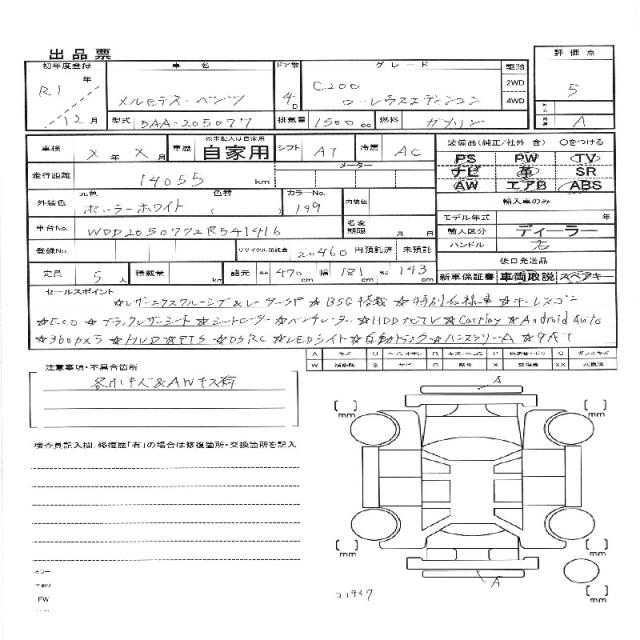 出品票
初年度登録 車名 ドア数 グレード 駆動 評価点
R.1 年 メルセデス・ベンツ 4D C200 2WD 5
12月 ローレウスエディション 4WD A
型式 5AA-205077 排気量 1500cc 燃料 ガソリン
車検 X年X月 車歴 ※未記入は自家用 自家用 シフト AT 冷房 AC 装備品(純正/社外 含) ○をつける
走行距離 14055 km メーター PS PW TV
ナビ 革 SR
AW エアB ABS
外装色 元色 ポーラーホワイト 色替 カラーNo. 149 内装色 輸入車のみ
車台No. WDD2050772R541416 名変期限 月 日 モデル年式 年
輸入区分 ディーラー
登録No. リサイクル預託金 20460 円預託済 未預託 ハンドル 右
定員 5人 積載量 kg 諸元 長さ 470 cm 幅 181 cm 高さ 143 cm 後日発送品
新車保証書 車両取説 スペアキー
セールスポイント
☆レザーエクスクルーシブ&レーダーSP ☆BSG搭載 ☆特別仕様車 ☆
☆ECO ☆ブラックレザーシート ☆シートヒーター ☆ベンチレーター ☆HDDナビTV ☆Carplay ☆Android Auto
☆360カメラ ☆HUD ☆ETS ☆DSRC ☆LEDライト ☆自動トランク ☆ハンズフリーA ☆9AT
注意事項・不具合箇所
各小キズ&AWキズ有
検査員記入欄:修復歴「有」の場合は修復箇所・交換箇所を記入
mm
mm
A
mm
mm
A
mm
21937
FW